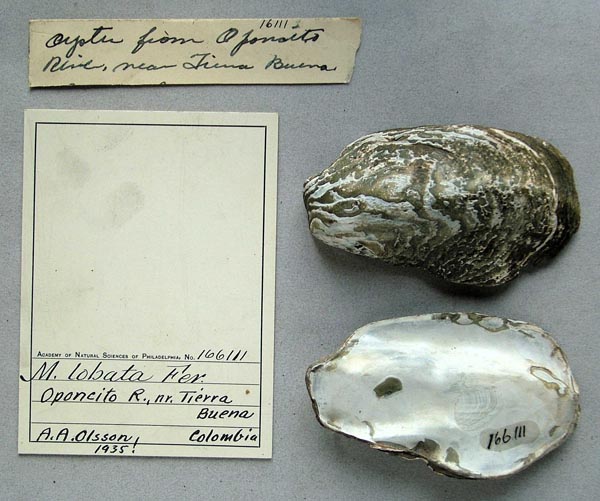 16111
Oyster from Oponcito
River, near Tierra Buena
Academy of Natural Sciences of Philadelphia, No. 166111
M. lobata Fer.
Oponcito R., nr. Tierra
Buena
A.A. Olsson, Colombia
1935!
166111